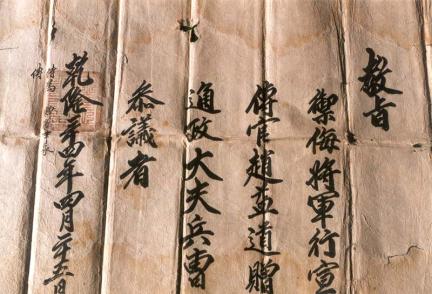 敎旨
禦侮將軍行宣
傳官趙道贈
通政大夫兵曹
參議者
乾隆二十四年四月二十五日